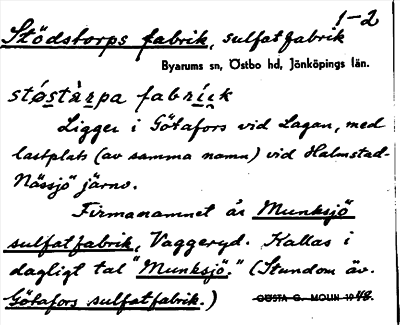 1-2
Stödstorps fabrik, sulfatfabrik
Byarums sn, Östbo hd, Jönköpings län.
støstàrpa fabrick
Ligger i Götafors vid Lagan, med
lastplats (av samma namn) vid Halmstad-
Nässjö järnv.
Firmanamnet är Munksjö
sulfatfabrik, Vaggeryd. Kallas i
dagligt tal "Munksjö." (Stundom äv.
Götafors sulfatfabrik.)
GÖSTA G. MOLIN 1948.